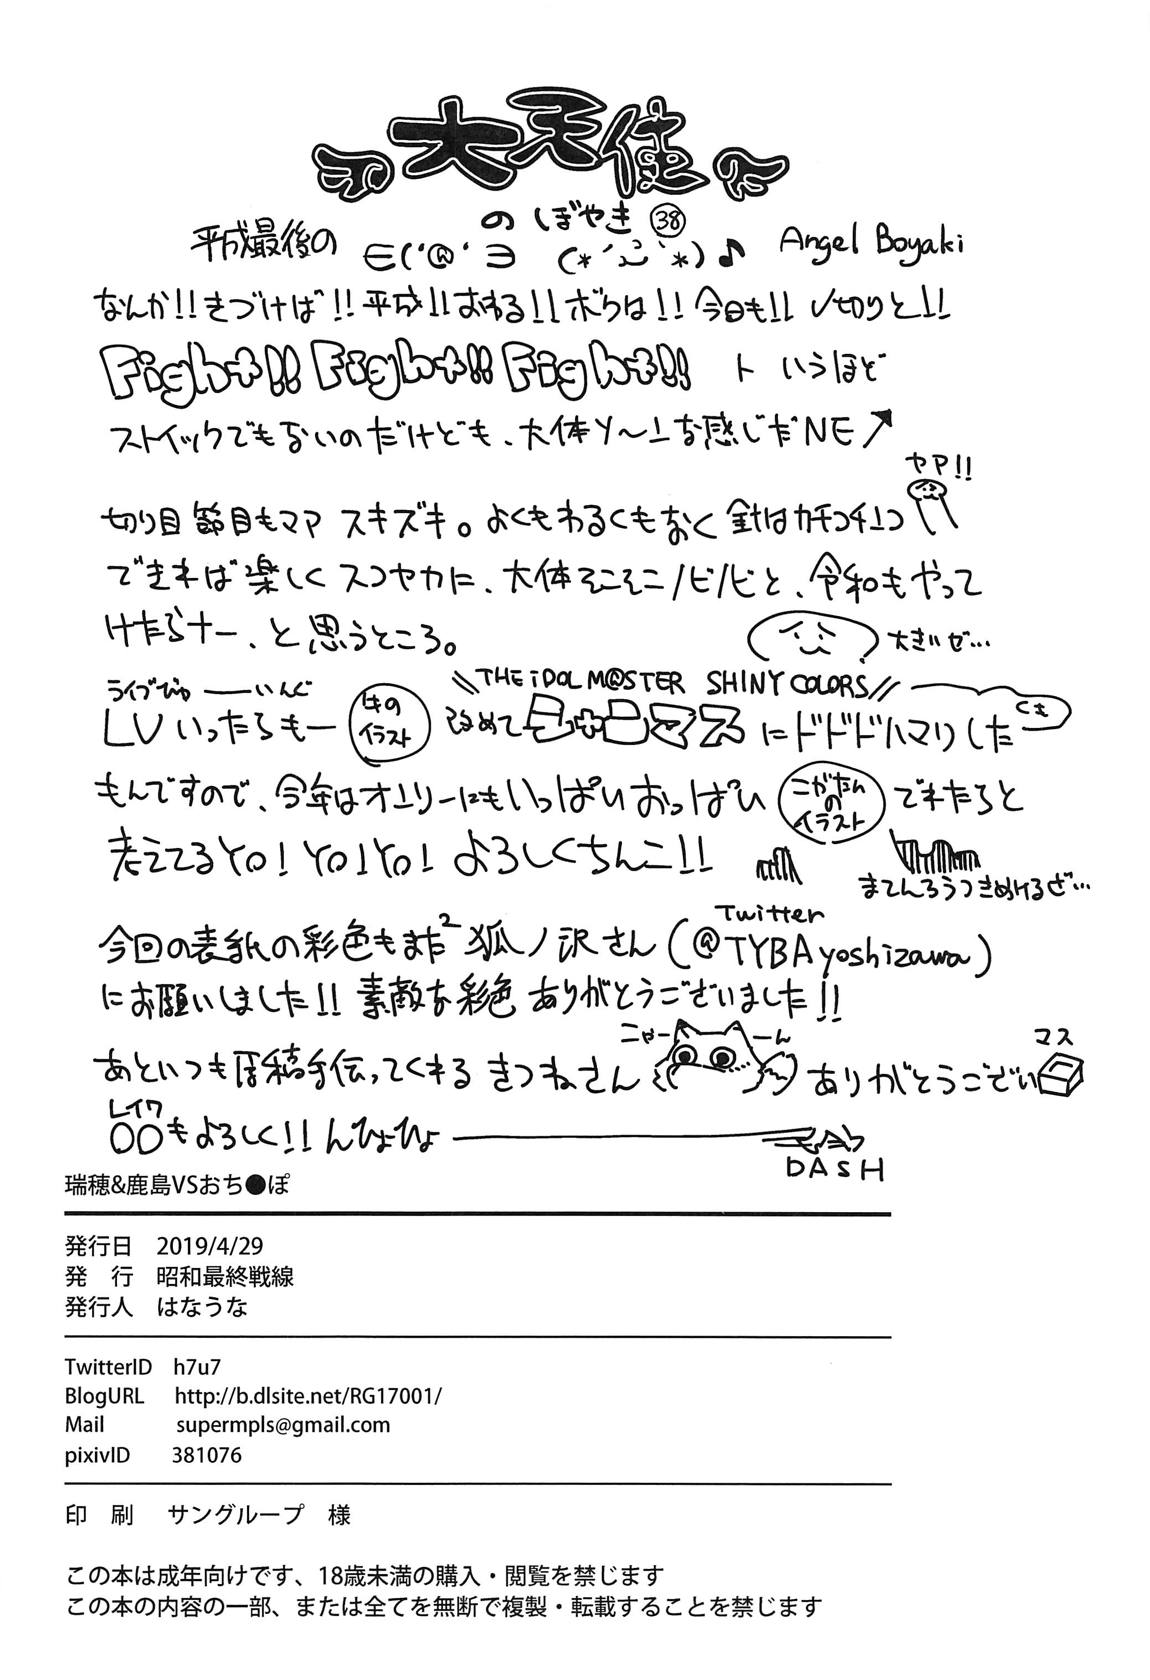 大天使
のぼやき㊳
平成最後の
Angel Boyaki
なんか!!きづけば!!平成!!おわる!!ボクは!!今日も!!〆切りと!!
Fight!! Fight!! Fight!! ト いうほど
ストイックでもないのだけども、大体ソ〜ユな感じだNE↗
ヤア!!
切り目節目もマア スキズキ。よくもわるくもなく針はカチコチユコ
できれば楽しくスコヤカに、大体そこそこノビノビと、令和もやって
けたらナー、と思うところ。
大きいぜ…
ライブびゅーーいんぐ
\\THE iDOLM@STER SHINY COLORS//
LVいったらもー 改めてシャニマスにドドドハマりした
イラスト
くも
もんですので、今年はオンリーにもいっぱいおっぱい こがたんのイラスト でれたらと
考えてるYO!YO!YO! よろしくちんこ!!
まてんろうつきぬけるぜ…
Twitter
今回の表紙の彩色もまた² 狐ノ沢さん(@TYBAyoshizawa)
にお願いしました!! 素敵な彩色 ありがとうございました!!
にゃーーん
マス
あといつも原稿手伝ってくれる きつねさん ありがとうござい
レイワ
〇〇もよろしく!!んひょひょ
DASH
瑞穂&鹿島VSおち●ぽ
発行日 2019/4/29
発 行 昭和最終戦線
発行人 はなうな
TwitterID h7u7
BlogURL http://b.dlsite.net/RG17001/
Mail supermpls@gmail.com
pixivID 381076
印 刷 サングループ 様
この本は成年向けです、18歳未満の購入・閲覧を禁じます
この本の内容の一部、または全てを無断で複製・転載することを禁じます